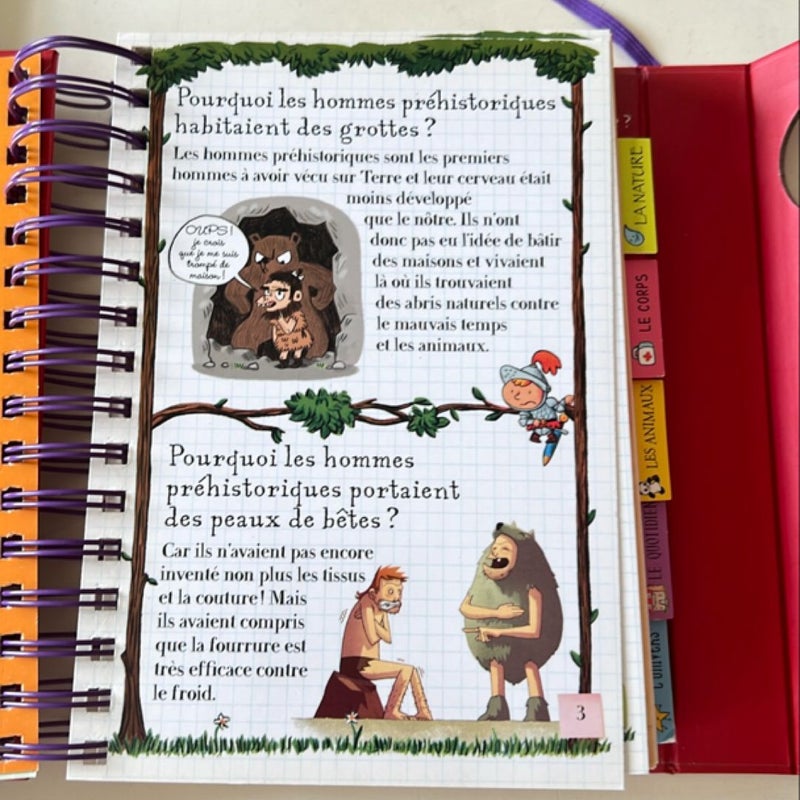 Pourquoi les hommes préhistoriques
habitaient des grottes ?
Les hommes préhistoriques sont les premiers
hommes à avoir vécu sur Terre et leur cerveau était
moins développé
que le nôtre. Ils n'ont
donc pas eu l'idée de bâtir
des maisons et vivaient
là où ils trouvaient
des abris naturels contre
le mauvais temps
et les animaux.
OUPS !
je crois
que je me suis
trompé de
maison !
Pourquoi les hommes
préhistoriques portaient
des peaux de bêtes ?
Car ils n'avaient pas encore
inventé non plus les tissus
et la couture ! Mais
ils avaient compris
que la fourrure est
très efficace contre
le froid.
3
?
LA NATURE
LE CORPS
LES ANIMAUX
LE QUOTIDIEN
L'UNIVERS